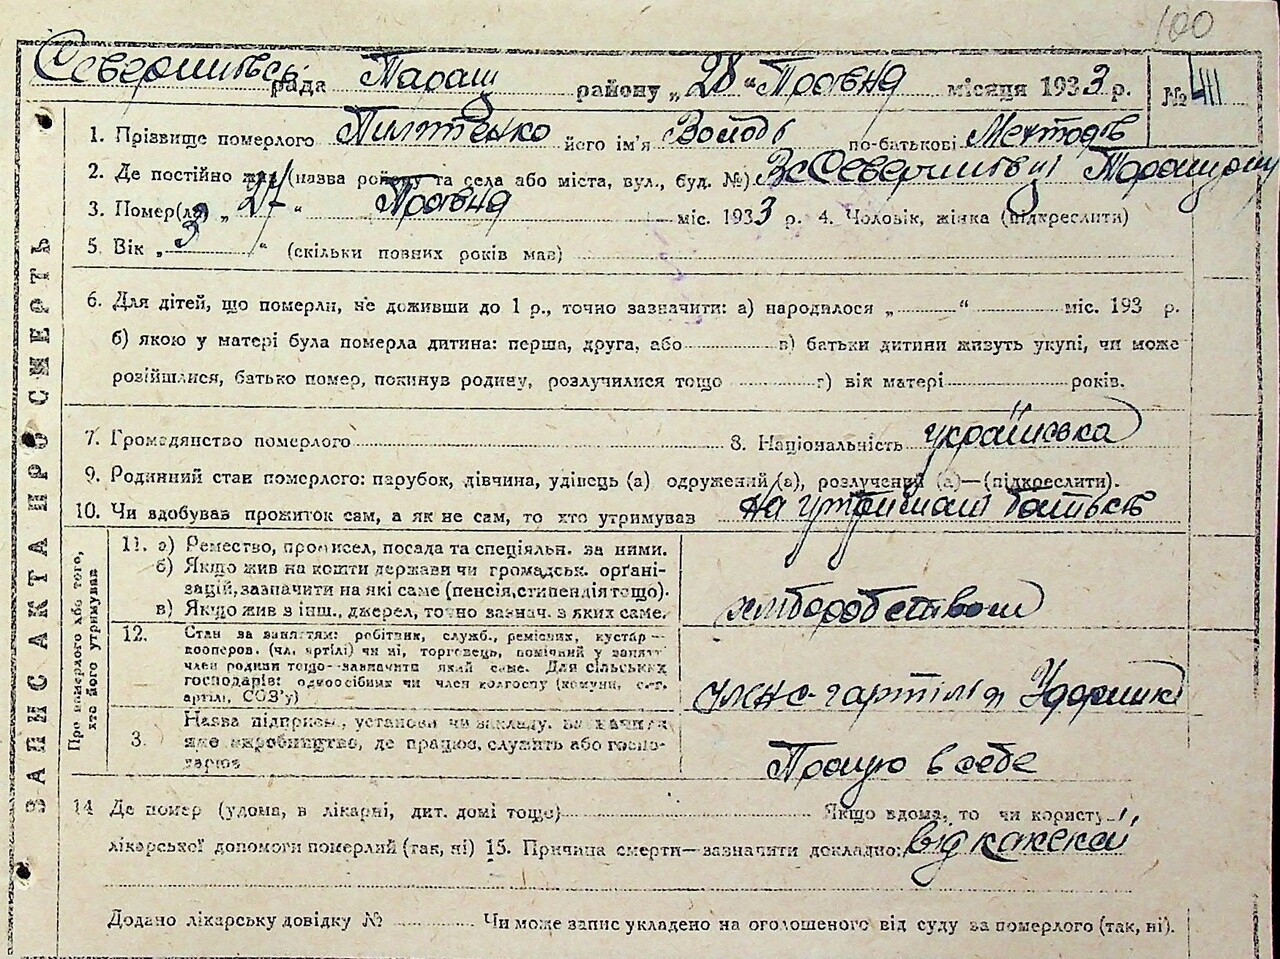 100
рада Таращ району „28 “ Травня місяця 1933 р. №
1. Прізвище померлого його ім'я Володь по-батькові
2. Де постійно жив (назва району та села або міста, вул., буд. №)
3. Помер(ла) „ “ Травня міс. 1933 р. 4. Чоловік, жінка (підкреслити)
5. Вік „ 3 “ (скільки повних років мав)
6. Для дітей, що померли, не доживши до 1 р., точно зазначити: а) народилося „ “ міс. 193 р.
б) якою у матері була померла дитина: перша, друга, або в) батьки дитини живуть укупі, чи може
розійшлися, батько помер, покинув родину, розлучилися тощо г) вік матері років.
7. Громадянство померлого 8. Національність українська
9. Родинний стан померлого: парубок, дівчина, удівець (а) одружений (а), розлучений (а)—(підкреслити).
10. Чи здобував прожиток сам, а як не сам, то хто утримував на утриманні батьків
ЗАПИС АКТА ПРО СМЕРТЬ
Про померлого або того, хто його утримував
11. а) Ремество, промисел, посада та спеціяльн. за ними.
б) Якщо жив на кошти держави чи громадськ. органі-
зацій, зазначити на які саме (пенсія, стипендія тощо).
в) Якщо жив з інш. джерел, точно зазнач. з яких саме.
хліборобством
12. Стан за заняттям: робітник, служб., ремісник, кустар—
кооперов. (чл. артілі) чи ні, торговець, помічний у занятт
член родини тощо—зазначити який саме. Для сільських
господарів: одноосібник чи член колгоспу (комуни, с.-г.
артілі, СОЗ'у)
член с-г артілі
3. Назва підприєм., установи чи закладу,
яке виробництво, де працює, служить або госпо-
дарює
Працює в себе
14 Де помер (удома, в лікарні, дит. домі тощо) Якщо вдома, то чи користу
лікарської допомоги померлий (так, ні) 15. Причина смерти—зазначити докладно: від
Додано лікарську довідку № Чи може запис укладено на оголошеного від суду за померлого (так, ні).